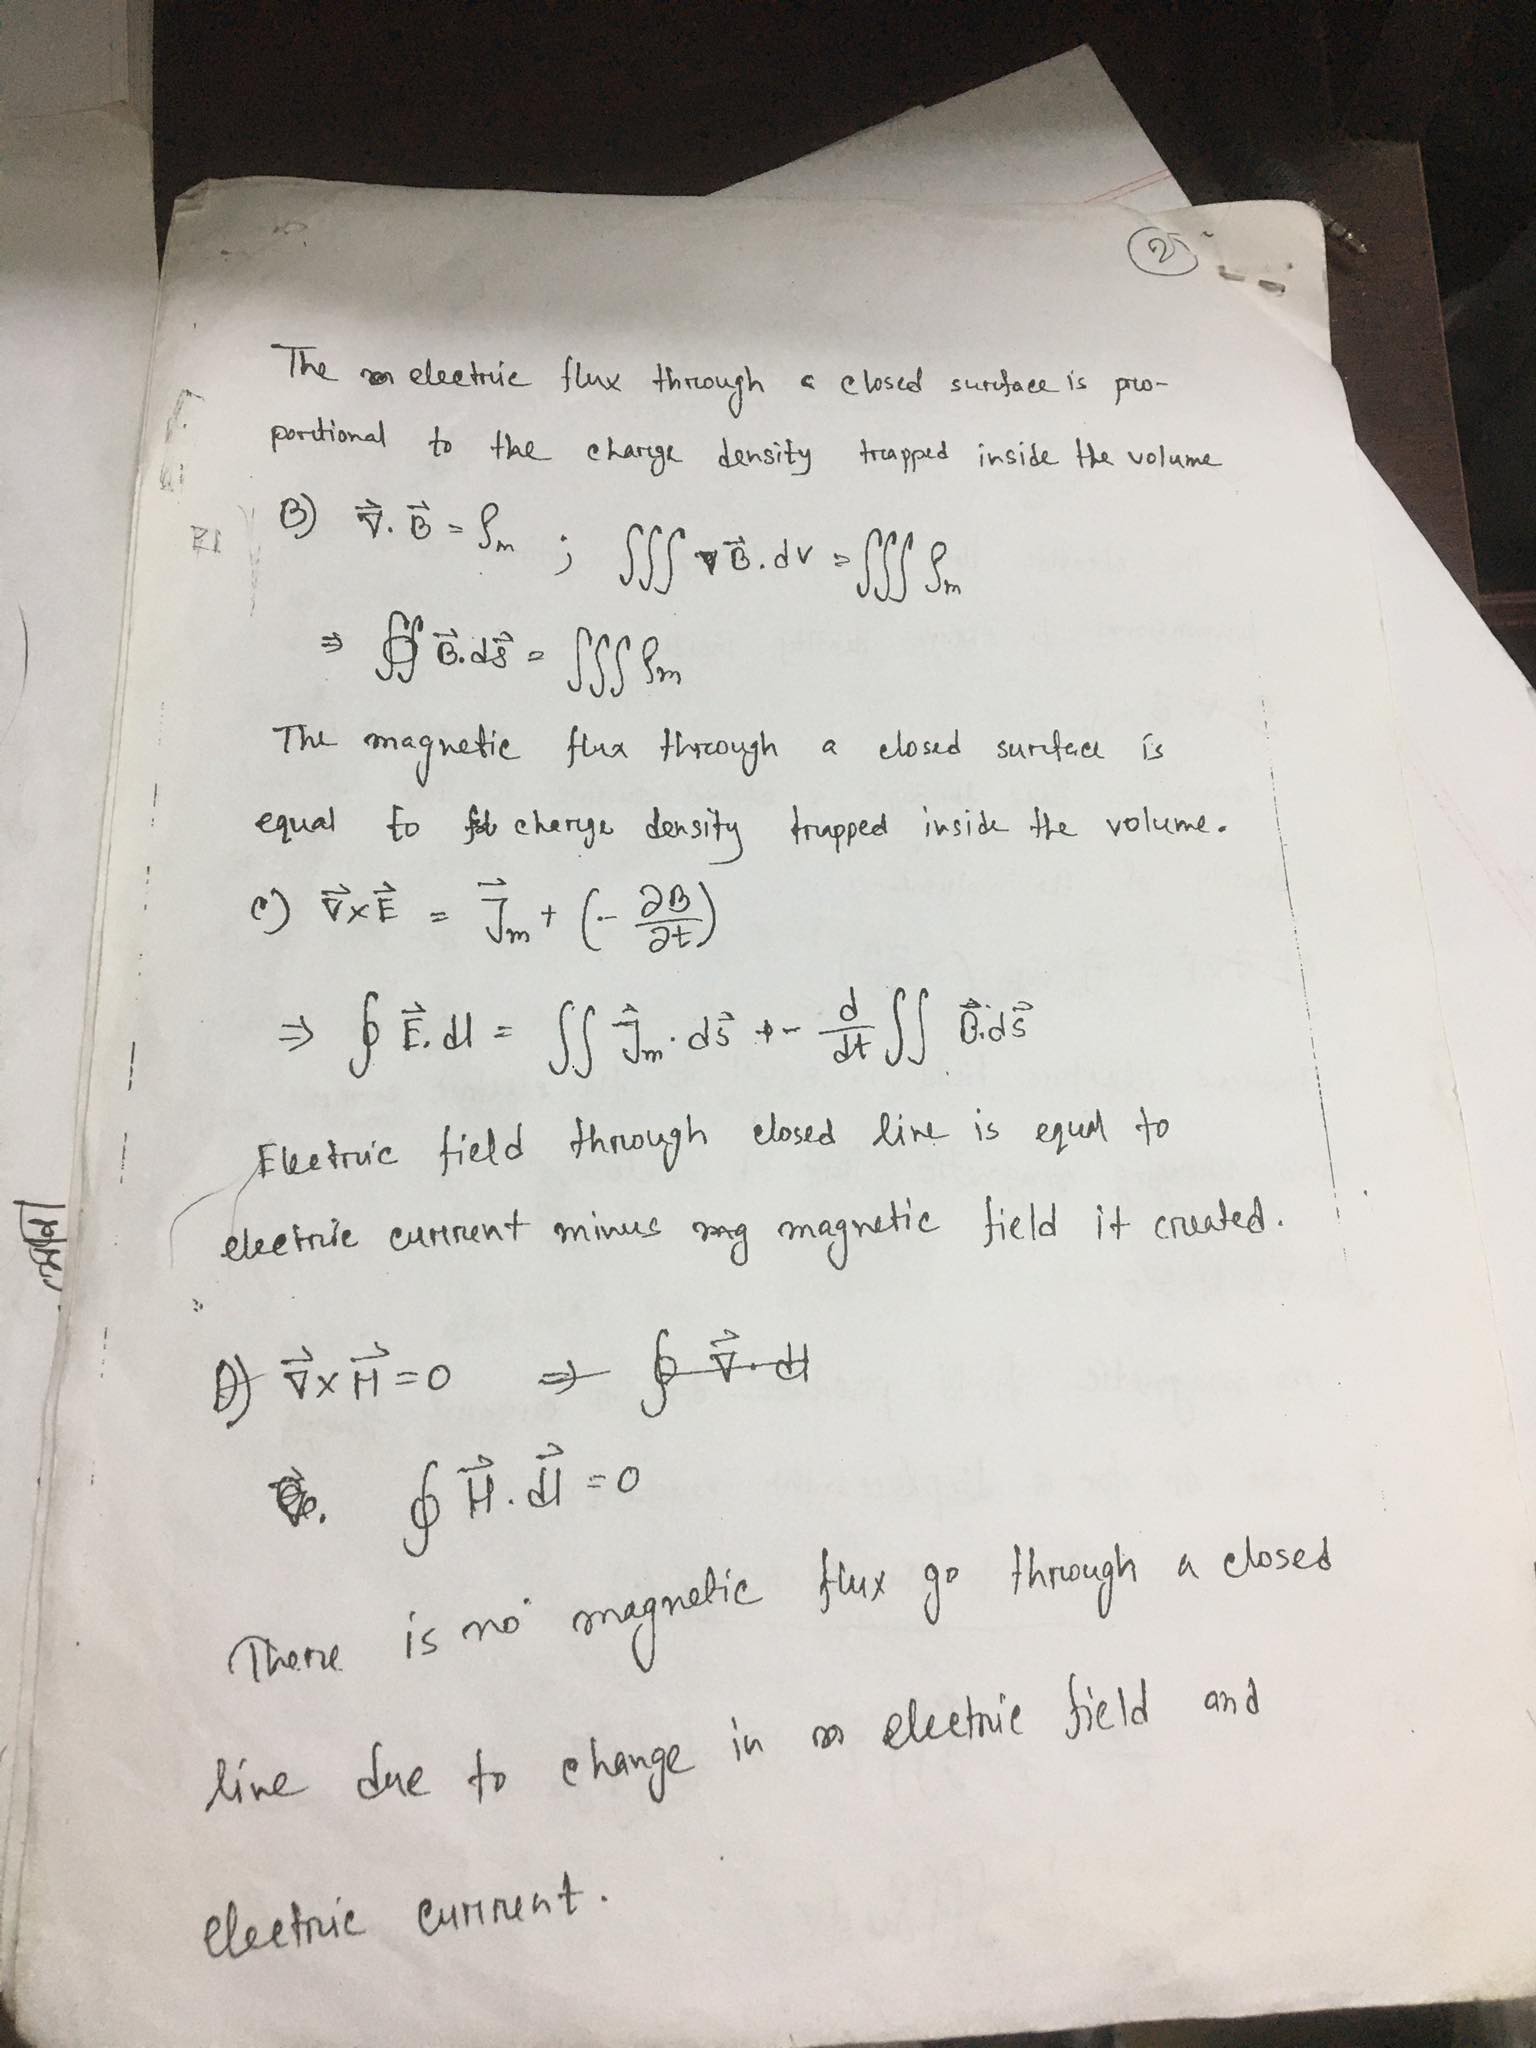 2
The electric flux through a closed surface is pro-
portional to the charge density trapped inside the volume
B) ∇⃗.B⃗ = ρm ; ∭ ∇B⃗.dv = ∭ ρm
⇒ ∯ B⃗.ds⃗ = ∭ ρm
The magnetic flux through a closed surface is
equal to charge density trapped inside the volume.
c) ∇⃗×E⃗ = J⃗m + (- ∂B/∂t)
⇒ ∮ E⃗.dl = ∬ J⃗m.ds⃗ + - d/dt ∬ B⃗.ds⃗
Electric field through closed line is equal to
electric current minus mag magnetic field it created.
D) ∇⃗×H⃗=0 ⇒ ∮ ∇⃗.dl
∮ H⃗.dl⃗ =0
There is no magnetic flux go through a closed
line due to change in electric field and
electric current.